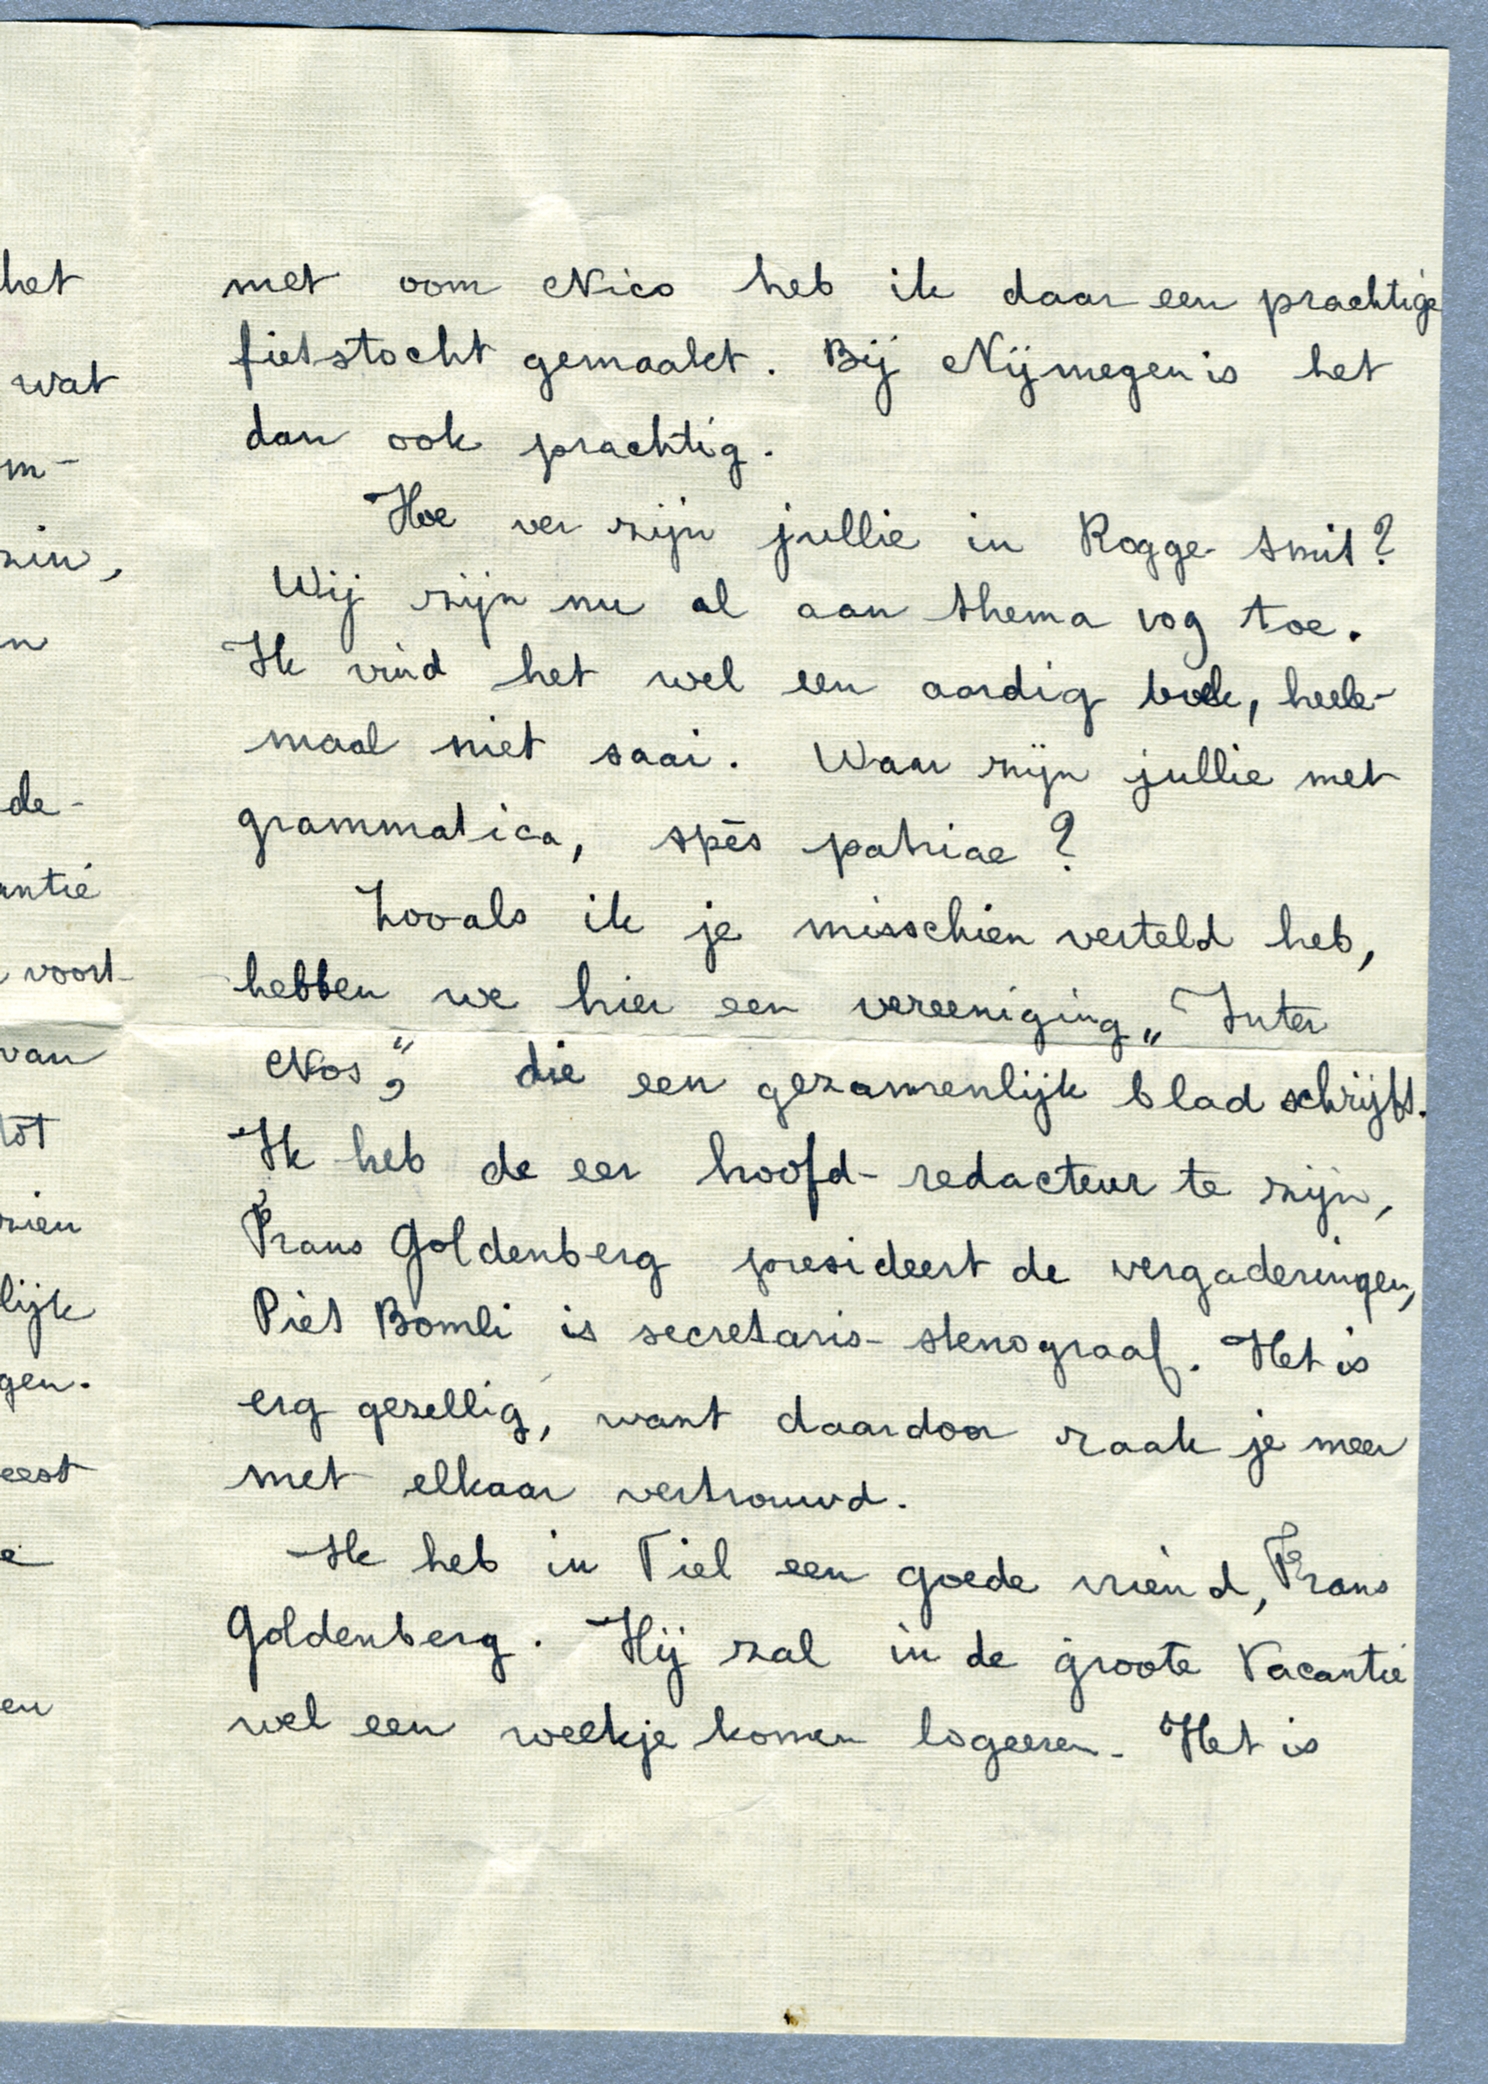 het
wat
m-
zin,
n
de-
antie
voort-
van
tot
zien
lijk
gen.
eest
e
en
met oom Nico heb ik daar een prachtige
fietstocht gemaakt. Bij Nijmegen is het
dan ook prachtig.
Hoe ver zijn jullie in Rogge-Smit?
Wij zijn nu al aan thema 109 toe.
Ik vind het wel een aardig boek, heele-
maal niet saai. Waar zijn jullie met
grammatica, spēs patriae?
Zooals ik je misschien verteld heb,
hebben we hier een vereeniging „Inter
Nos", die een gezamenlijk blad schrijft.
Ik heb de eer hoofd-redacteur te zijn,
Frans Goldenberg presideert de vergaderingen,
Piet Bomli is secretaris-stenograaf. Het is
erg gezellig, want daardoor raak je meer
met elkaar vertrouwd.
Ik heb in Tiel een goede vriend, Frans
Goldenberg. Hij zal in de groote Vacantie
wel een weekje komen logeeren. Het is